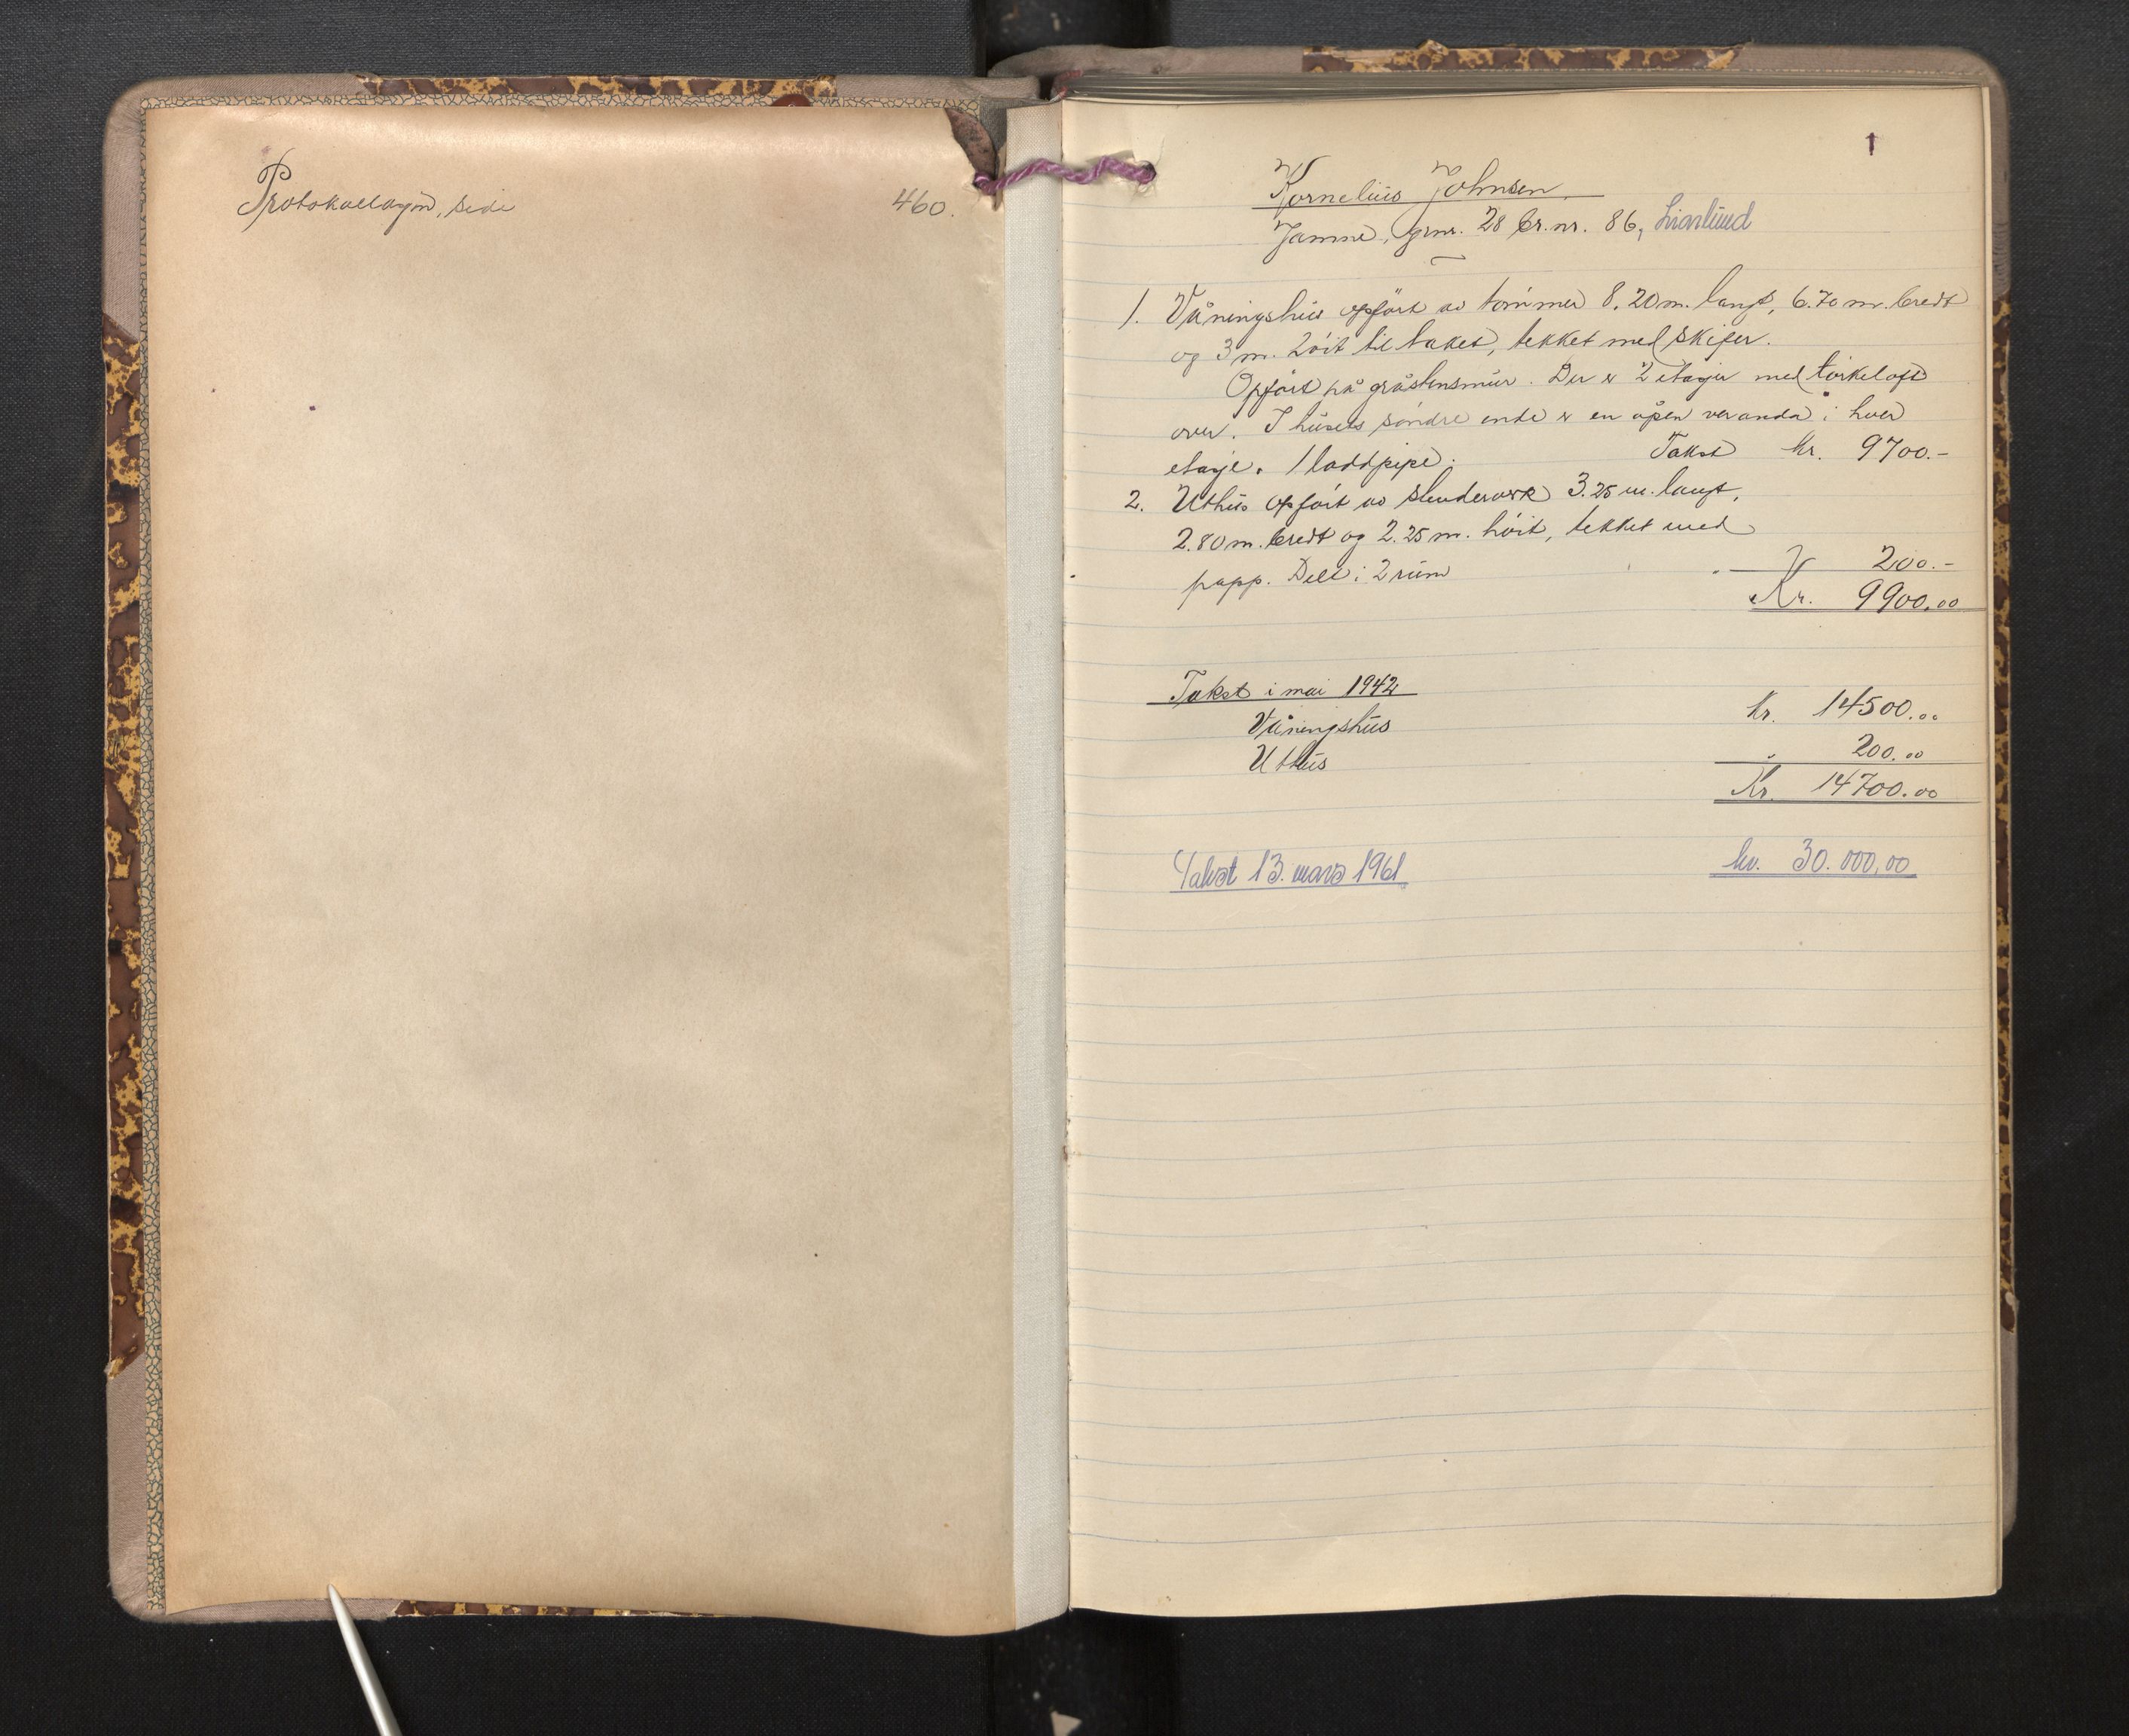 Protokollagn, side 460.
1
Kornelius Johnsen.
Jamne, grnr. 28 br.nr. 86,
1. Våningshus opført av tømmer 8.20 m. langt, 6.70 m. bredt
og 3 m. høit til taket, tekket med skifer.
Opført på gråstensmur. Der er 2 etager med tørkeloft
over. I husets søndre ende er en åpen veranda i hver
etage. 1 loddpipe. Takst kr. 9700.-
2. Uthus opført av stenderverk 3.25 m. langt,
2.80 m. bredt og 2.25 m. høit, tekket med
papp. Delt i 2 rum " 200.-
Kr. 9900.00
Takst i mai 1942
Våningshus kr. 14500.00
Uthus " 200.00
Kr. 14700.00
Takst 13. mars 1961 kr. 30.000,00